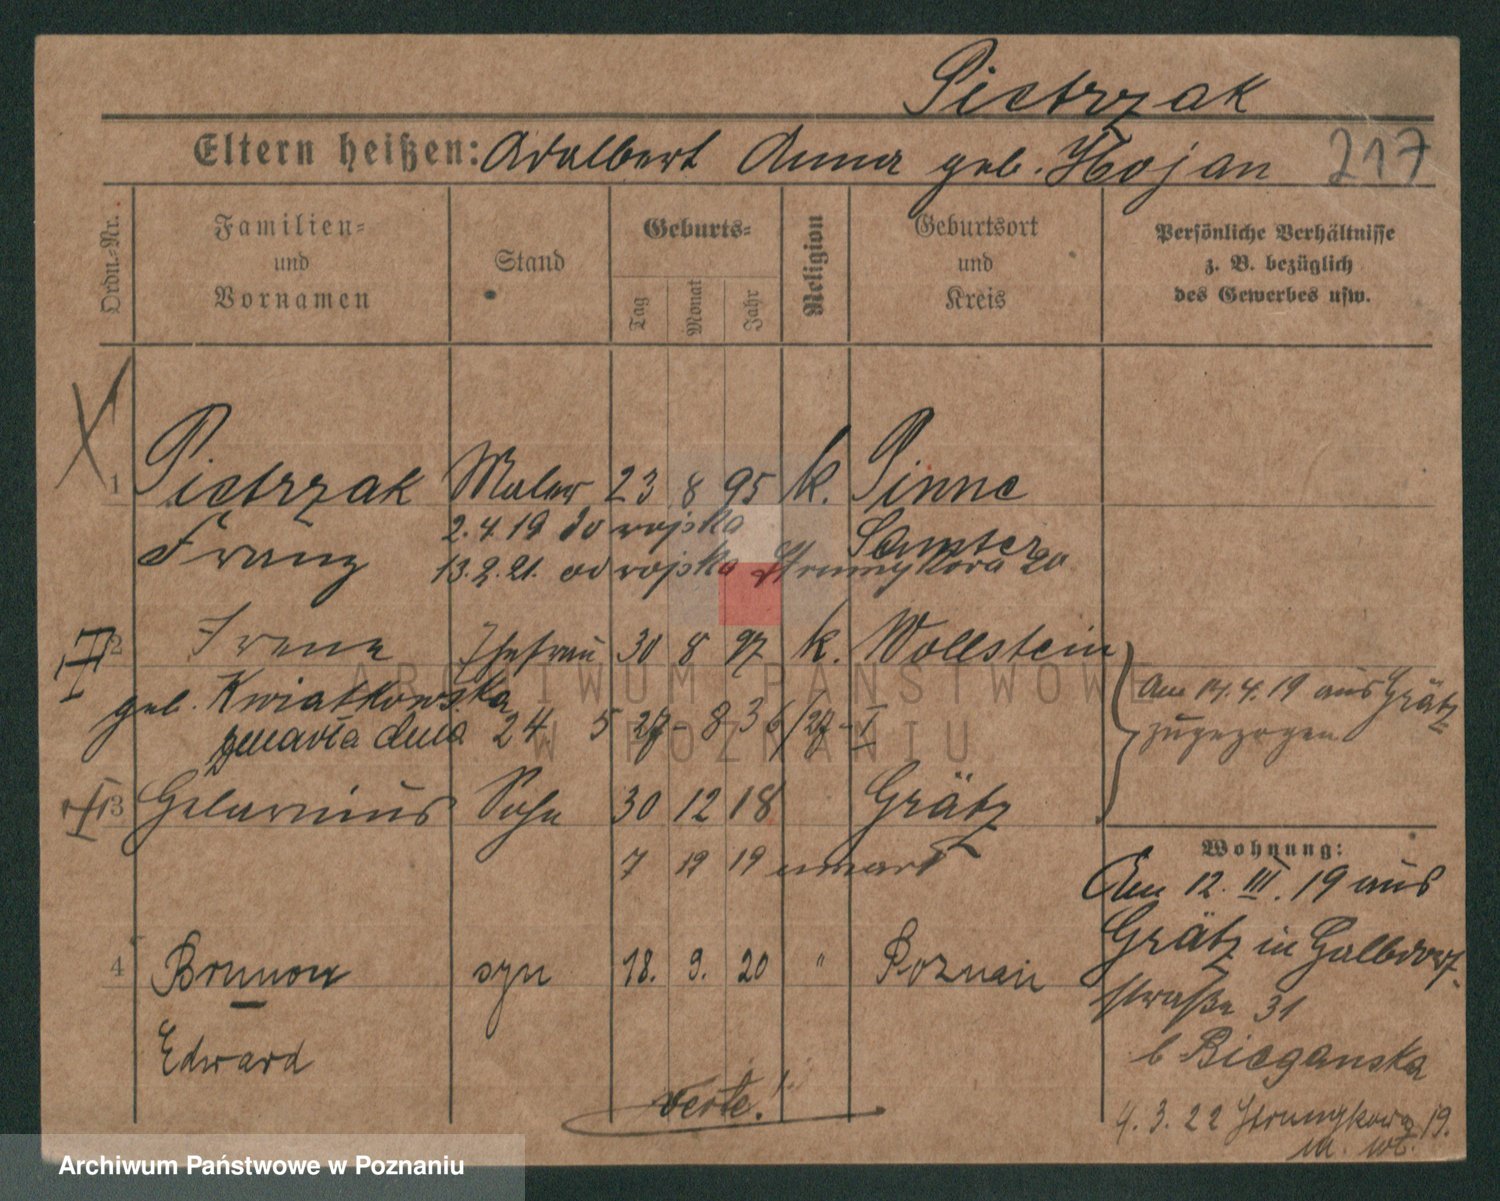 Pietrzak
Eltern heißen: Adalbert Anna geb. Hojan 217
Ordn.-Nr.
Familien-
und
Vornamen
Stand
Geburts-
Tag
Monat
Jahr
Religion
Geburtsort
und
Kreis
Persönliche Verhältnisse
z. B. bezüglich
des Gewerbes usw.
1 Pietrzak Maler 23 8 95 k. Pinne
2.4.19 do wojska
Franz Samter
13.2.21. od wojska Strumykowa 20
2 Irene Ehefrau 30 8 97 k. Wollstein
geb. Kwiatkowska
zmarła dnia 24 5 27 - 836/27 - V
Am 14.4.19 aus Grätz
zugezogen
3 Gelarnius Sohn 30 12 18 Grätz
7 12 19 umarł
Wohnung:
Am 12. III. 19 aus
Grätz in Halbdorf-
straße 31
b Bieganska
4 Brunon syn 18. 9. 20 " Poznań
Edward
verte!
4. 3. 22 Strumykowa 19.
Archiwum Państwowe w Poznaniu
ARCHIWUM PAŃSTWOWE
W POZNANIU